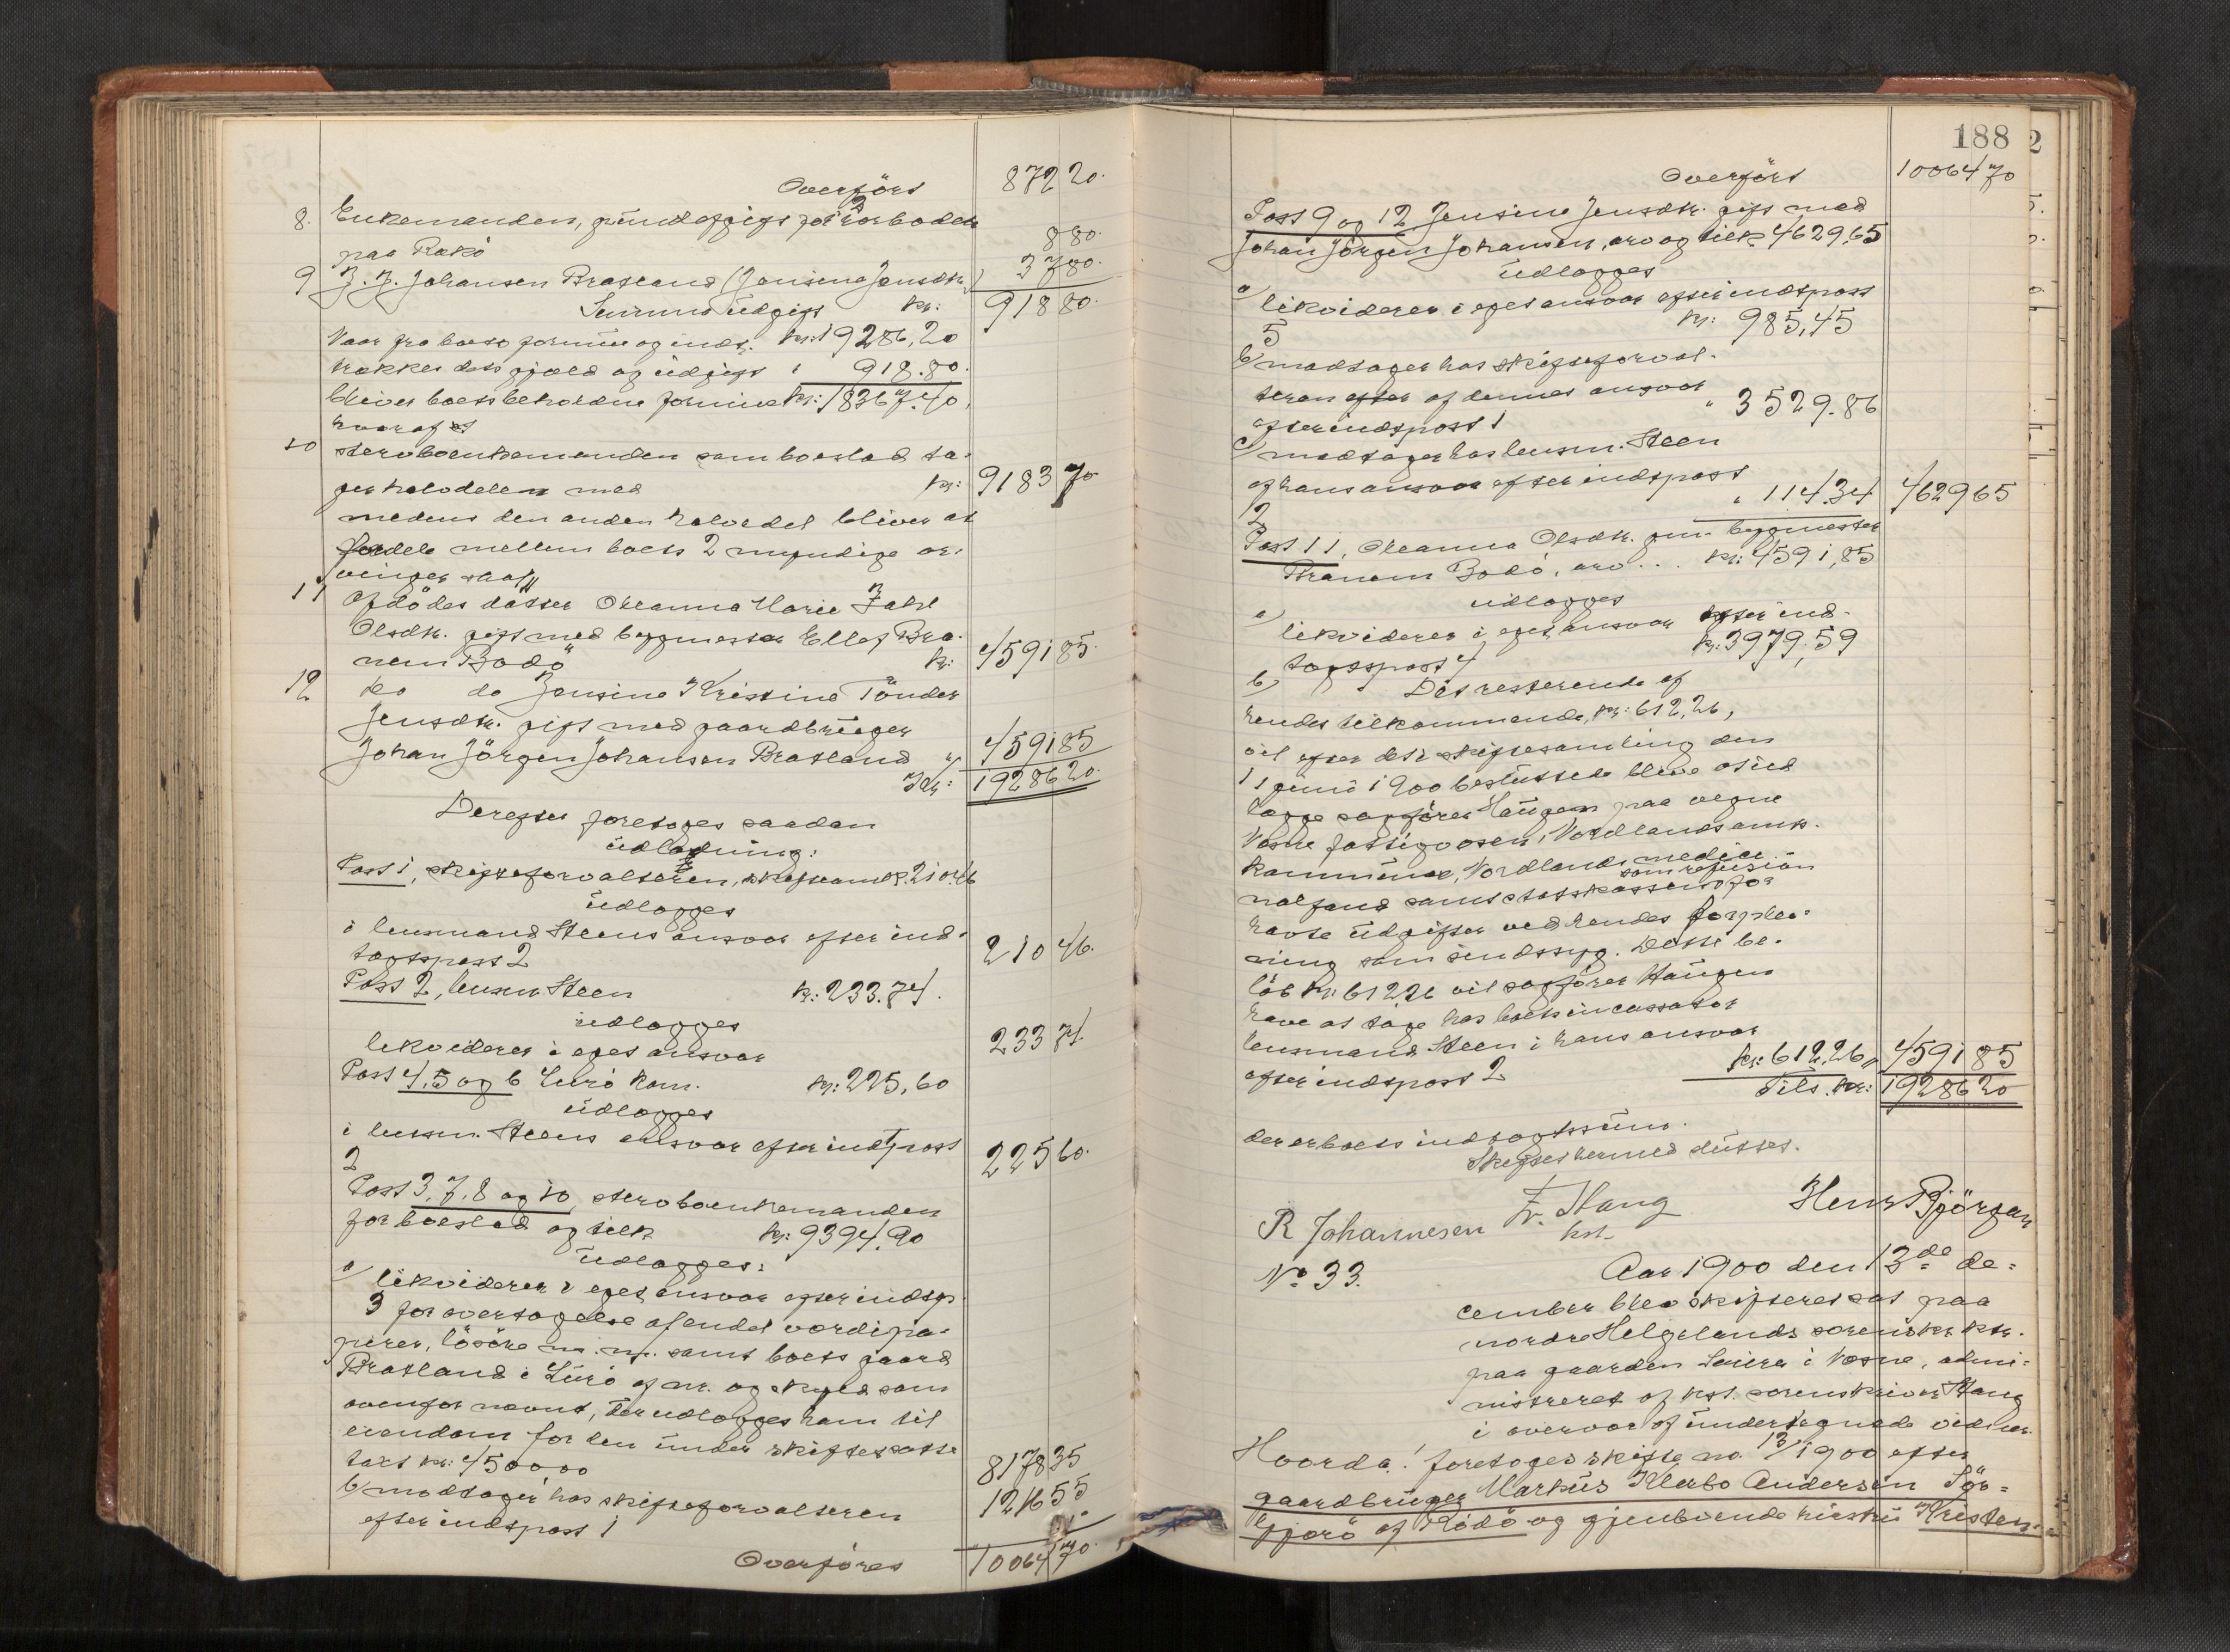 Overført 872 20.
8. Enkemanden, grundafgift for 2 rorboder
paa Rakö 8 80.
9 J. J. Johansen Bratland (Jensine Jensdtr.) 37 80.
Summa udgift kr: 918 80.
Naar fra boets formue og indt. kr: 19286,20
trækkes dets gjæld og udgift " 918.80.
bliver boets beholdne formue kr: 18367.40,
hvoraf
10 stervboenkemanden som boeslod ta-
ger halvdelen med kr: 9183 70
medens den anden halvdel bliver at
fordele mellem boets 2 myndige ar-
vinger saal.
11 Afdødes datter Oleanna Marie Zahl
Olsdtr. gift med bygmester Ellef Bra-
nem Bodö kr: 4591 85.
12 do do Jensine Kristine Tönder
Jensdtr. gift med gaardbruger
Johan Jörgen Johansen Bratland " 4591 85
Ialt: 19286 20.
Derefter foretoges saadan
udlægning:
Post 1, skifteforvalteren, skifteomk. 210.46
udlægges
i lensmand Steens ansvar efter ind-
tægtspost 2 210 46.
Post 2, lensm Steen kr: 233.74.
udlægges
likviderer i eget ansvar 233 74
Post 4, 5 og 6 Lurö kom. kr: 225,60
udlægges
i lensm. Steens ansvar efter indtpost
2 225 60.
Post 3, 7, 8 og 10, stervboenkemanden
for boeslod og tilk kr: 9394.90
udlægges:
a) likviderer i eget ansvar efter indtp
3 for overtagelse af endel værdipa-
pirer, lösöre m. m. samt boets gaard
Bratland i Lurö af nr. og skyld som
ovenfor nævnt, der udlægges ham til
eiendom for den under skiftet satte
taxt kr: 4500,00 8178 35
b) modtager hos skifteforvalteren
efter indtpost 1 1216 55
Overføres 10064 70.
188
Overført 10064 70
Post 9 og 12 Jensine Jensdtr. gift med
Johan Jörgen Johansen, arv og tilk 4629,65
udlægges
a) likviderer i eget ansvar efter indtpost
5 kr: 985,45
b) modtager hos skifteforval-
teren efter af dennes ansvar
efter indtpost 1 " 3529.86
c) modtager hos lensm. Steen
af hans ansvar efter indtpost
2 " 114.34 4629 65
Post 11, Oleanna Olsdtr. gm. bygmester
Branem Bodö, arv... kr: 4591,85
udlægges
a) likviderer i eget ansvar efter ind-
tægtspost 4 kr: 3979,59
b) Det resterende af
hendes tilkommende, kr: 612,26,
vil efter det i skiftesamling den
11 juni 1900 besluttede blive at ud
lægge sagförer Haugen paa vegne
Vefsns fattigvæsen, Nordlands amts-
kommune, Nordlands medici-
nalfond samt statskassen for som refusion
havte udgifter ved hendes forplei-
ning som sindssyg. Dette be-
löb kr: 612,26 vil sagförer Haugen
have at tage hos boets incassator
lensmand Steen i hans ansvar
efter indtpost 2 kr: 612.26 4591 85
Tils. kr: 19286 20
der er boets indtægtssum.
Skiftet hermed sluttet.
R Johannesen Fr. Stang Henr Bjørgan
kst.
No 33. Aar 1900 den 13de de-
cember blev skifteret sat paa
nordre Helgelands sorenskr. ktr.
paa gaarden i Vefsn, admi-
nistreret af kst. sorenskriver Stang
i overvær af undertegnede vidner.
Hvorda: foretoges skifte no. 13/1900 efter
gaardbruger Markus Klerbo Andersen Sör-
Gjærö af Rödö og gjenlevende hustru Kristen-